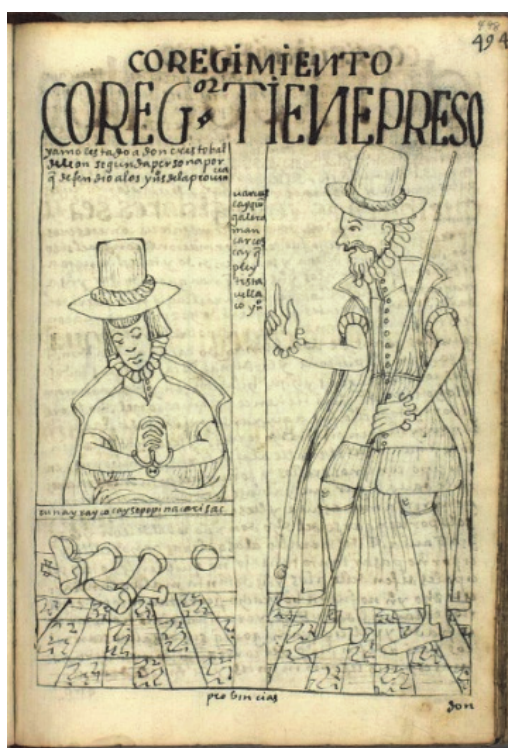 498
494
COREGIMIENTO
COREG.or TIENEPRESO
yamolestado a don cristobal
de leon segunda persona por
q̃ defendio alos yos dela prouincia
uarcus
cayqui
galera
man
carcos
cay q̃
pley
tista
uella
co yo
runayrayco caysepopi nacarisac
probincias
don